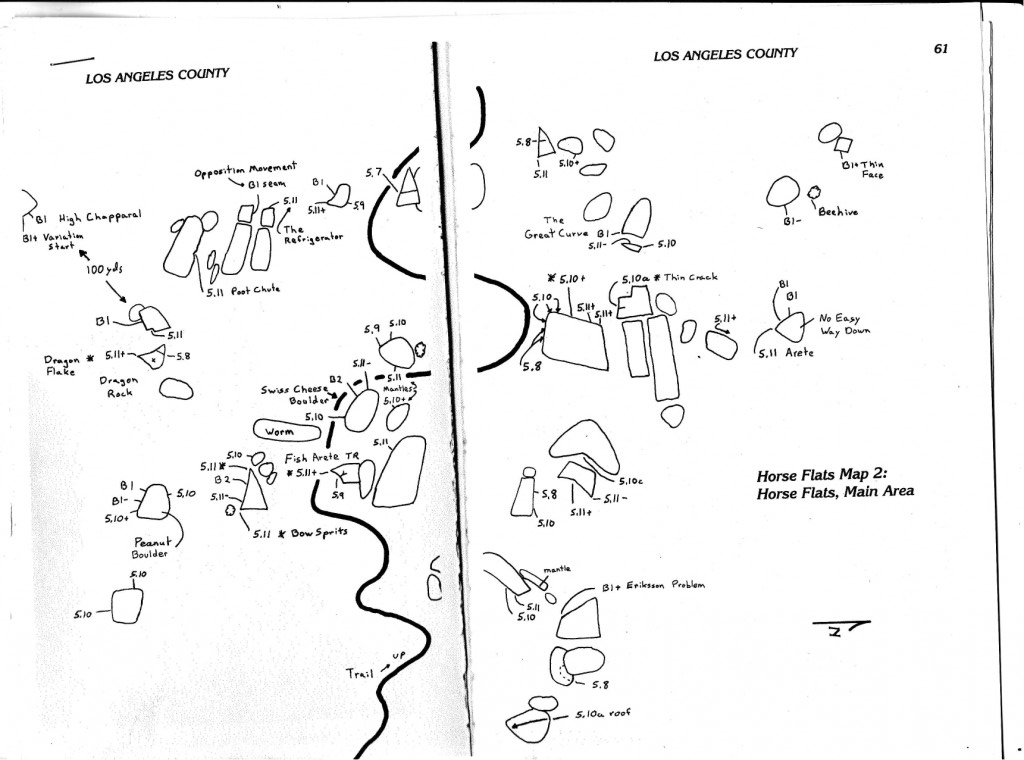 LOS ANGELES COUNTY
Opposition Movement
B1 seam
B1
5.11
5.11+
5.9
5.7
The
Refrigerator
B1 High Chapparal
B1+ Variation
Start
100 yds
5.11 Poot Chute
B1
5.11
Dragon *
Flake
5.11+
5.8
*
Dragon
Rock
5.9
5.10
5.11-
B2
5.11
Mantles
5.10+
Swiss Cheese
Boulder
5.10
Worm
5.11
Fish Arete TR
* 5.11+
5.9
5.10
5.11 *
B2
5.11-
5.11 * Bow Sprits
B1
B1-
5.10+
5.10
Peanut
Boulder
5.10
5.10
Trail
up
LOS ANGELES COUNTY
61
5.8
5.11
5.10+
B1+ Thin
Face
B1-
Beehive
The
Great Curve B1
5.11-
5.10
* 5.10+
5.10
5.11+
5.11+
5.8
5.10a * Thin Crack
5.11+
B1
B1
No Easy
Way Down
5.11 Arete
5.10c
5.11-
5.11+
5.8
5.10
Horse Flats Map 2:
Horse Flats, Main Area
mantle
5.11
5.10
B1+ Eriksson Problem
5.8
5.10a roof
N